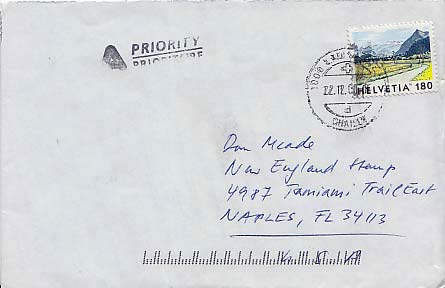 PRIORITY
PRIORITAIRE
HELVETIA 180
22.12.
Dan Meade
New England Stamp
4987 Tamiami Trail East
NAPLES, FL 34113